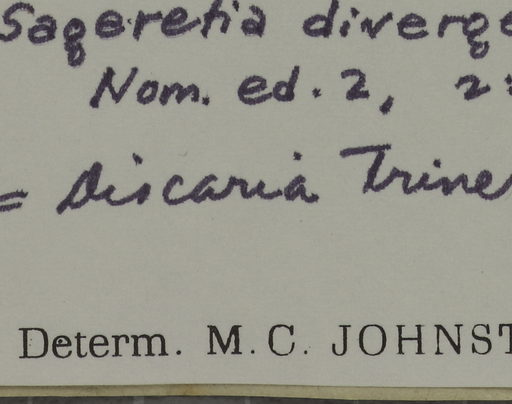 Sageretia diverge
Nom. ed. 2, 2
= Discaria Triner
Determ. M. C. JOHNST